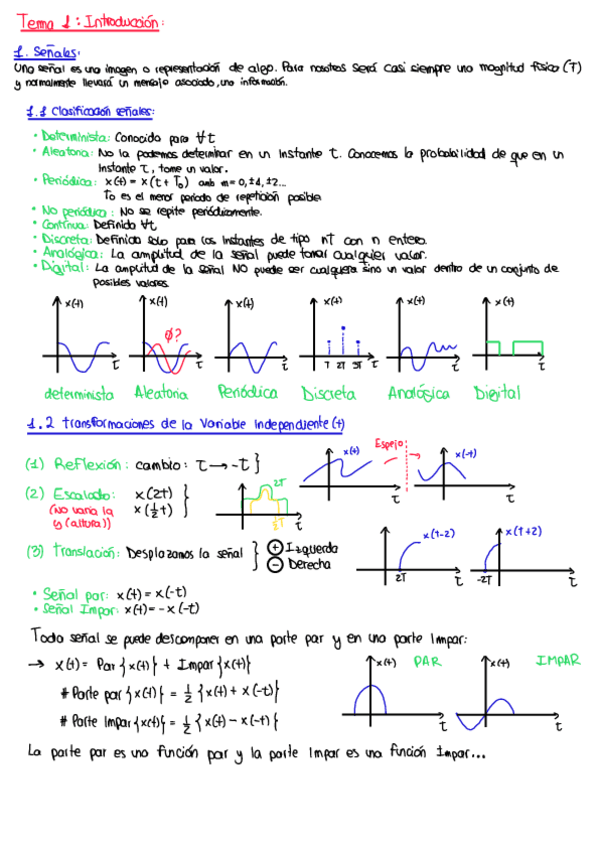 Tema 1: Introducción:
1. Señales:
Una señal es una imagen o representación de algo. Para nosotros será casi siempre una magnitud física (T)
y normalmente llevará un mensaje asociado, una información.
1.1 Clasificación señales:
• Determinista: Conocida para ∀t
• Aleatoria: No la podemos determinar en un instante t. Conocemos la probabilidad de que en un
instante t, tome un valor.
• Periódica: x(t) = x(t + T₀) amb m = 0, ±1, ±2...
To es el menor periodo de repetición posible
• No periódica: No se repite periódicamente.
• Continua: Definida ∀t
• Discreta: Definida solo para los instantes de tipo nT con n entero.
• Analógica: La amplitud de la señal puede tomar cualquier valor.
• Digital: La amplitud de la señal NO puede ser cualquiera sino un valor dentro de un conjunto de
posibles valores.
x(t) x(t) x(t) x(t) x(t) x(t)
∅?
t t t T 2T 3T t t t
determinista Aleatoria Periódica Discreta Analógica Digital
1.2 transformaciones de la Variable Independiente (t)
(1) Reflexión: cambio: t → -t }
Espejo
x(t) x(-t)
t t
(2) Escalado: x(2t)
(No varia la x(½t)
y (altura))
2T
½T t
(3) Translación: Desplazamos la señal } + Izquerda
- Derecha
x(t-2) x(t+2)
2T t -2T t
• Señal par: x(t) = x(-t)
• Señal Impar: x(t) = - x(-t)
Toda señal se puede descomponer en una parte par y en una parte Impar:
→ x(t) = Par{x(t)} + Impar{x(t)}
# Parte par{x(t)} = ½ {x(t) + x(-t)}
# Parte Impar{x(t)} = ½ {x(t) - x(-t)}
x(t) PAR x(t) IMPAR
t t
La parte par es una función par y la parte Impar es una función Impar...